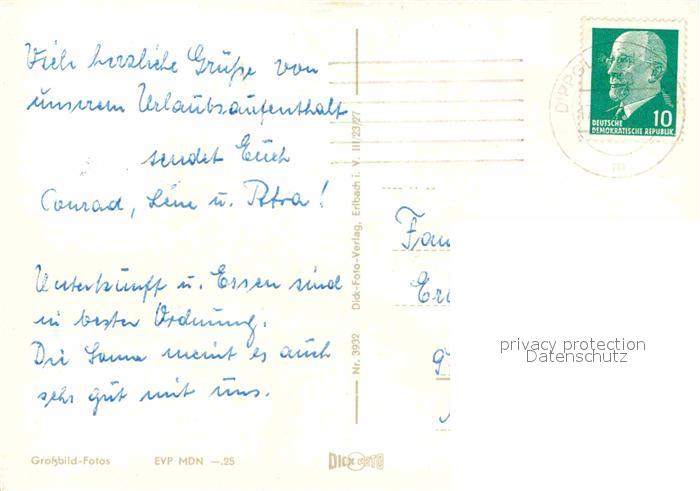 Viele herzliche Grüße von
unserem Urlaubsaufenthalt
sendet Euch
Conrad, Lene u. Petra!
Unterkunft u. Essen sind
in bester Ordnung.
Die Sonne meint es auch
sehr gut mit uns.
Großbild-Fotos EVP MDN —.25
Nr. 3932 Dick-Foto-Verlag, Erlbach i. V. III/23/27
DICK FOTO
DEUTSCHE 10
DEMOKRATISCHE REPUBLIK
DIPPOL
Fam
privacy protection
Datenschutz